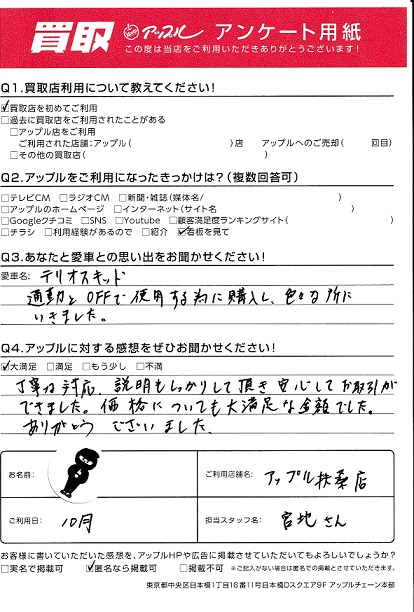 買取 アップル アンケート用紙
この度は当店をご利用いただきありがとうございます!
Q1.買取店利用について教えてください!
☑買取店を初めてご利用
□過去に買取店をご利用されたことがある
□アップル店をご利用
ご利用された店舗:アップル( )店 アップルへのご売却( 回目)
□その他の買取店( )
Q2.アップルをご利用になったきっかけは?(複数回答可)
□テレビCM □ラジオCM □新聞・雑誌(媒体名/ )
□アップルのホームページ □インターネット(サイト名 )
□Googleクチコミ □SNS □Youtube □顧客満足度ランキングサイト( )
□チラシ □利用経験があるので □紹介 ☑看板を見て
Q3.あなたと愛車との思い出をお聞かせください!
愛車名:テリオスキッド
通勤とOFFで使用する為に購入し、色々な所に
いきました。
Q4.アップルに対する感想をぜひお聞かせください!
☑大満足 □満足 □もう少し □不満
丁寧な対応、説明もしっかりして頂き安心してお取引が
できました。価格についても大満足な金額でした。
ありがとうございました、
お名前: ご利用店舗名: アップル扶桑店
ご利用日: 10月 担当スタッフ名: 宮地さん
お客様に書いていただいた感想を、アップルHPや広告に掲載させていただいてもよろしいでしょうか?
□実名で掲載可 ☑匿名なら掲載可 □掲載不可 ※ご記入がない場合は匿名での掲載とさせていただきます。
東京都中央区日本橋1丁目16番11号日本橋Dスクエア9F アップルチェーン本部